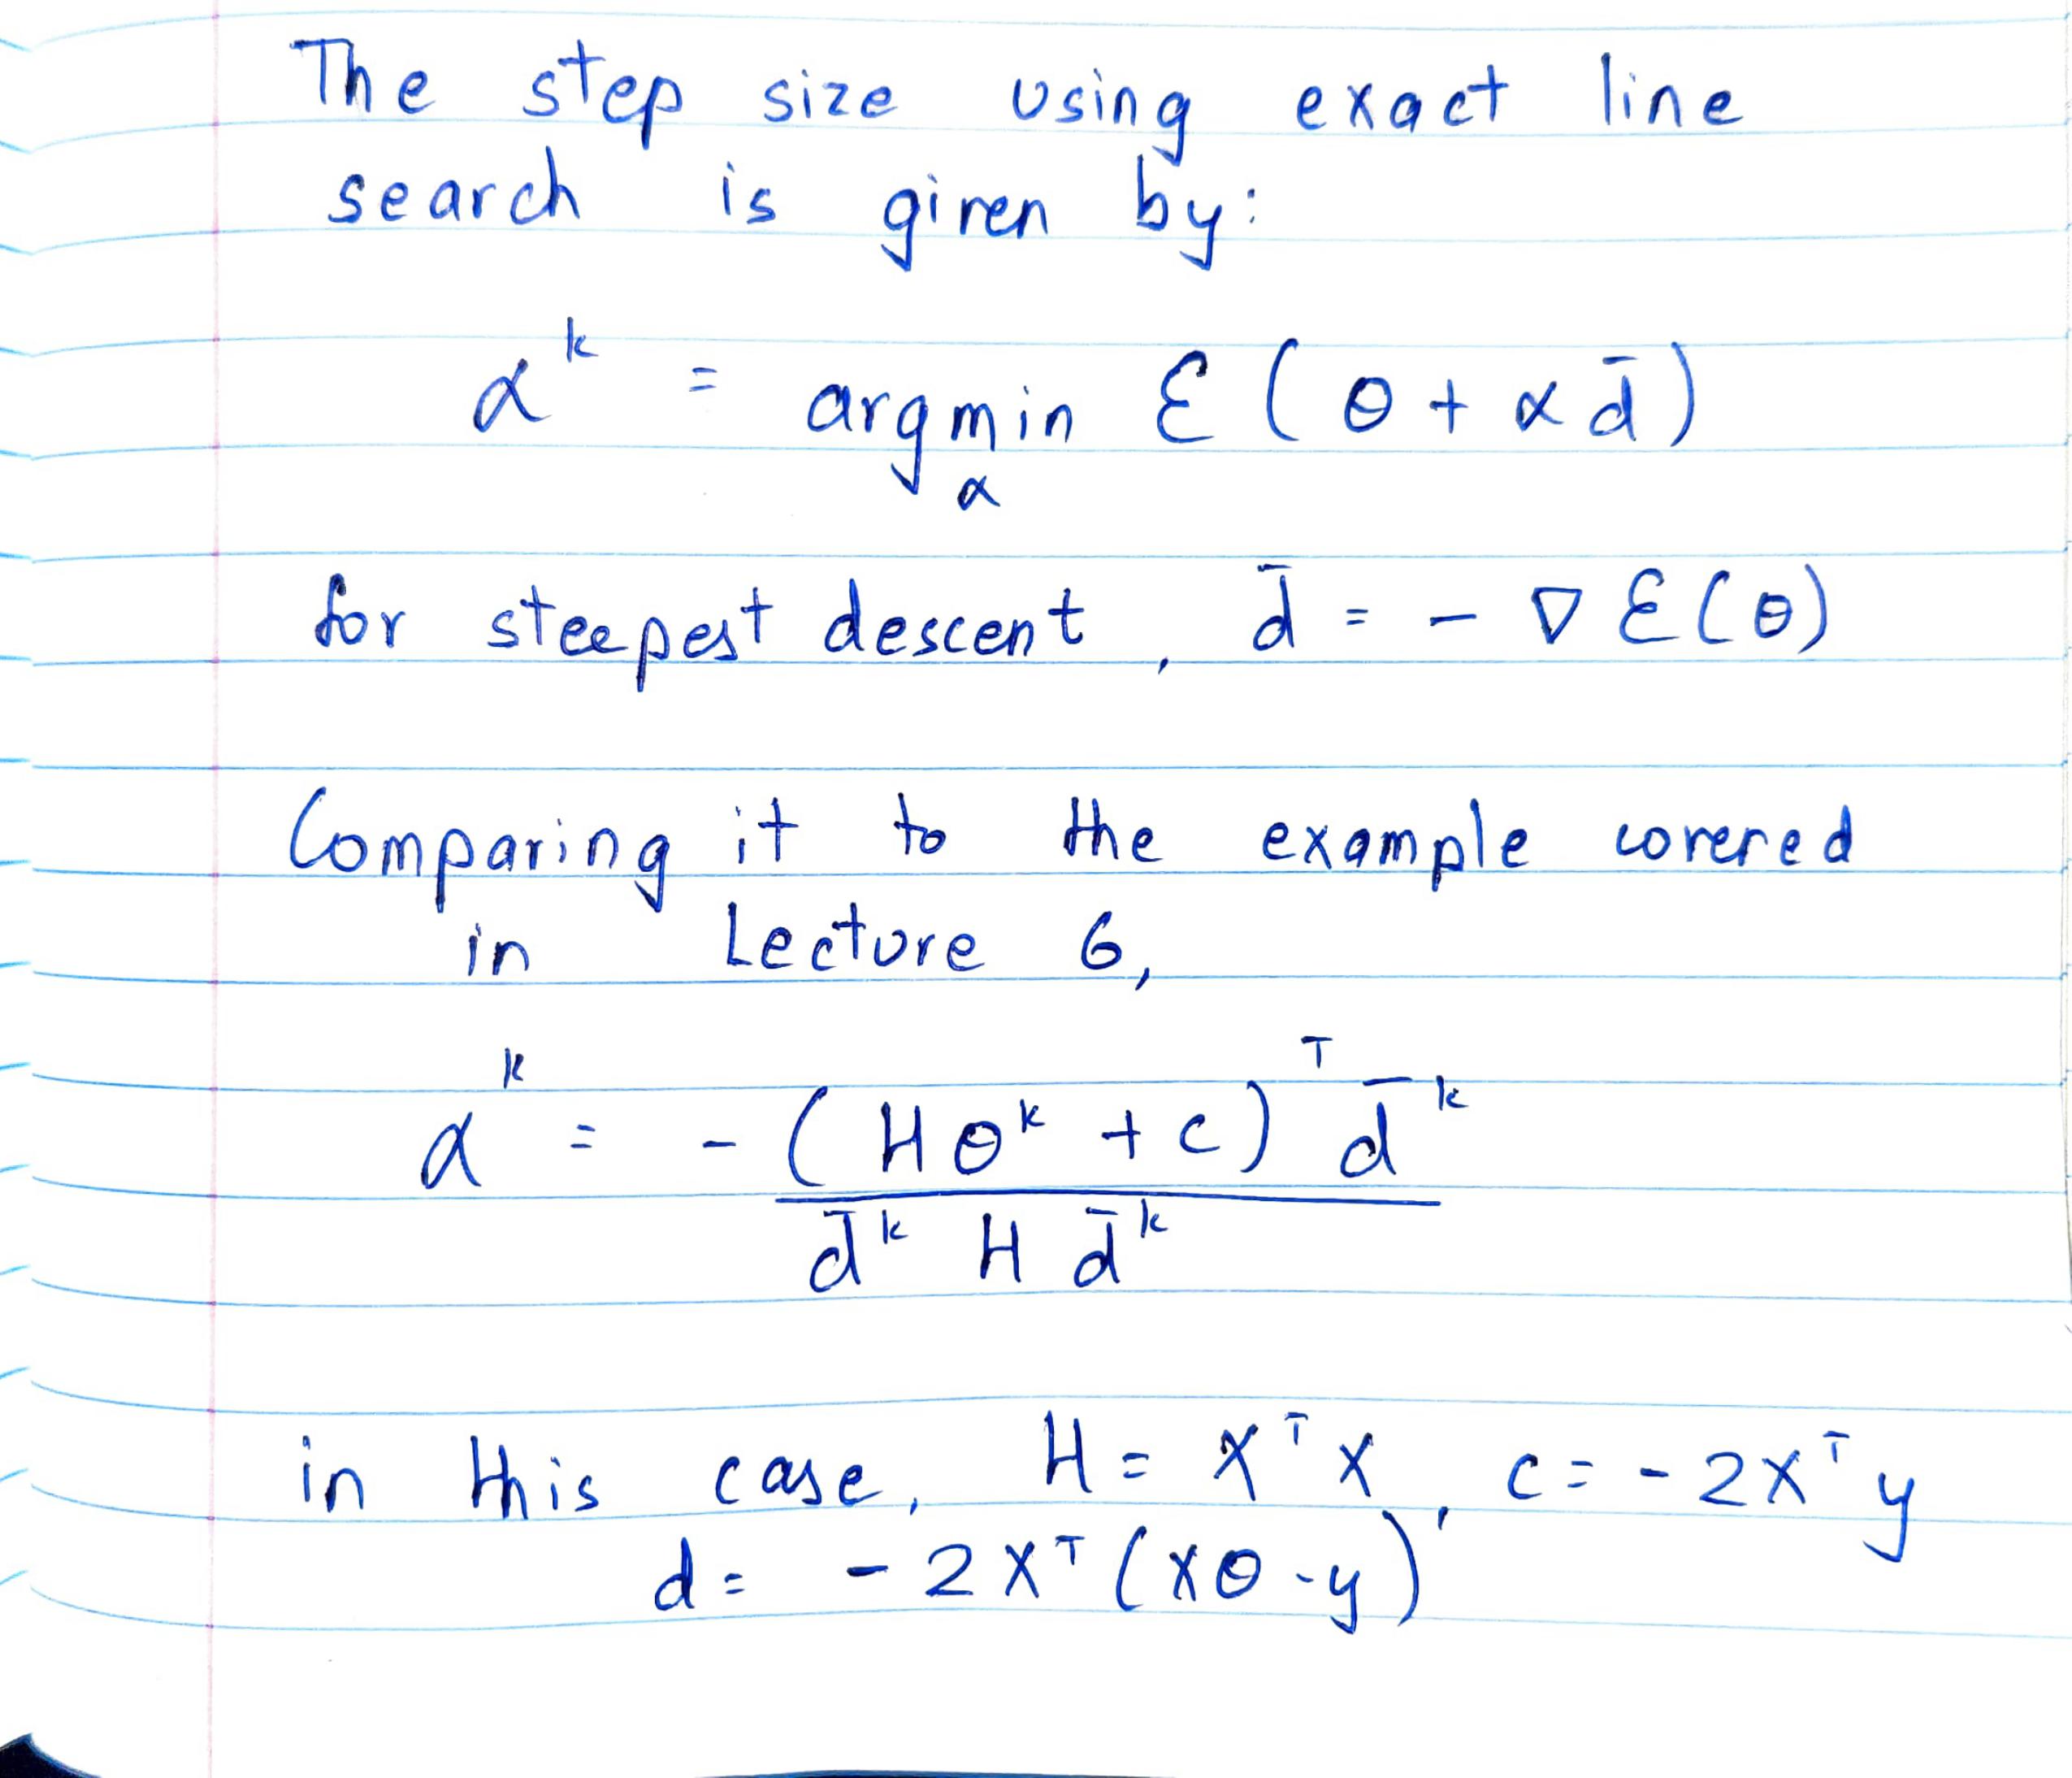 The step size using exact line
search is given by:
α^k = argmin_α Ɛ(θ + α d̄)
for steepest descent, d̄ = - ∇ Ɛ(θ)
Comparing it to the example covered
in Lecture 6,
α^k = -(Hθ^k + c)^T d̄^k
d̄^k H d̄^k
in this case, H = X^T X, c = -2X^T y
d = -2X^T (Xθ - y)